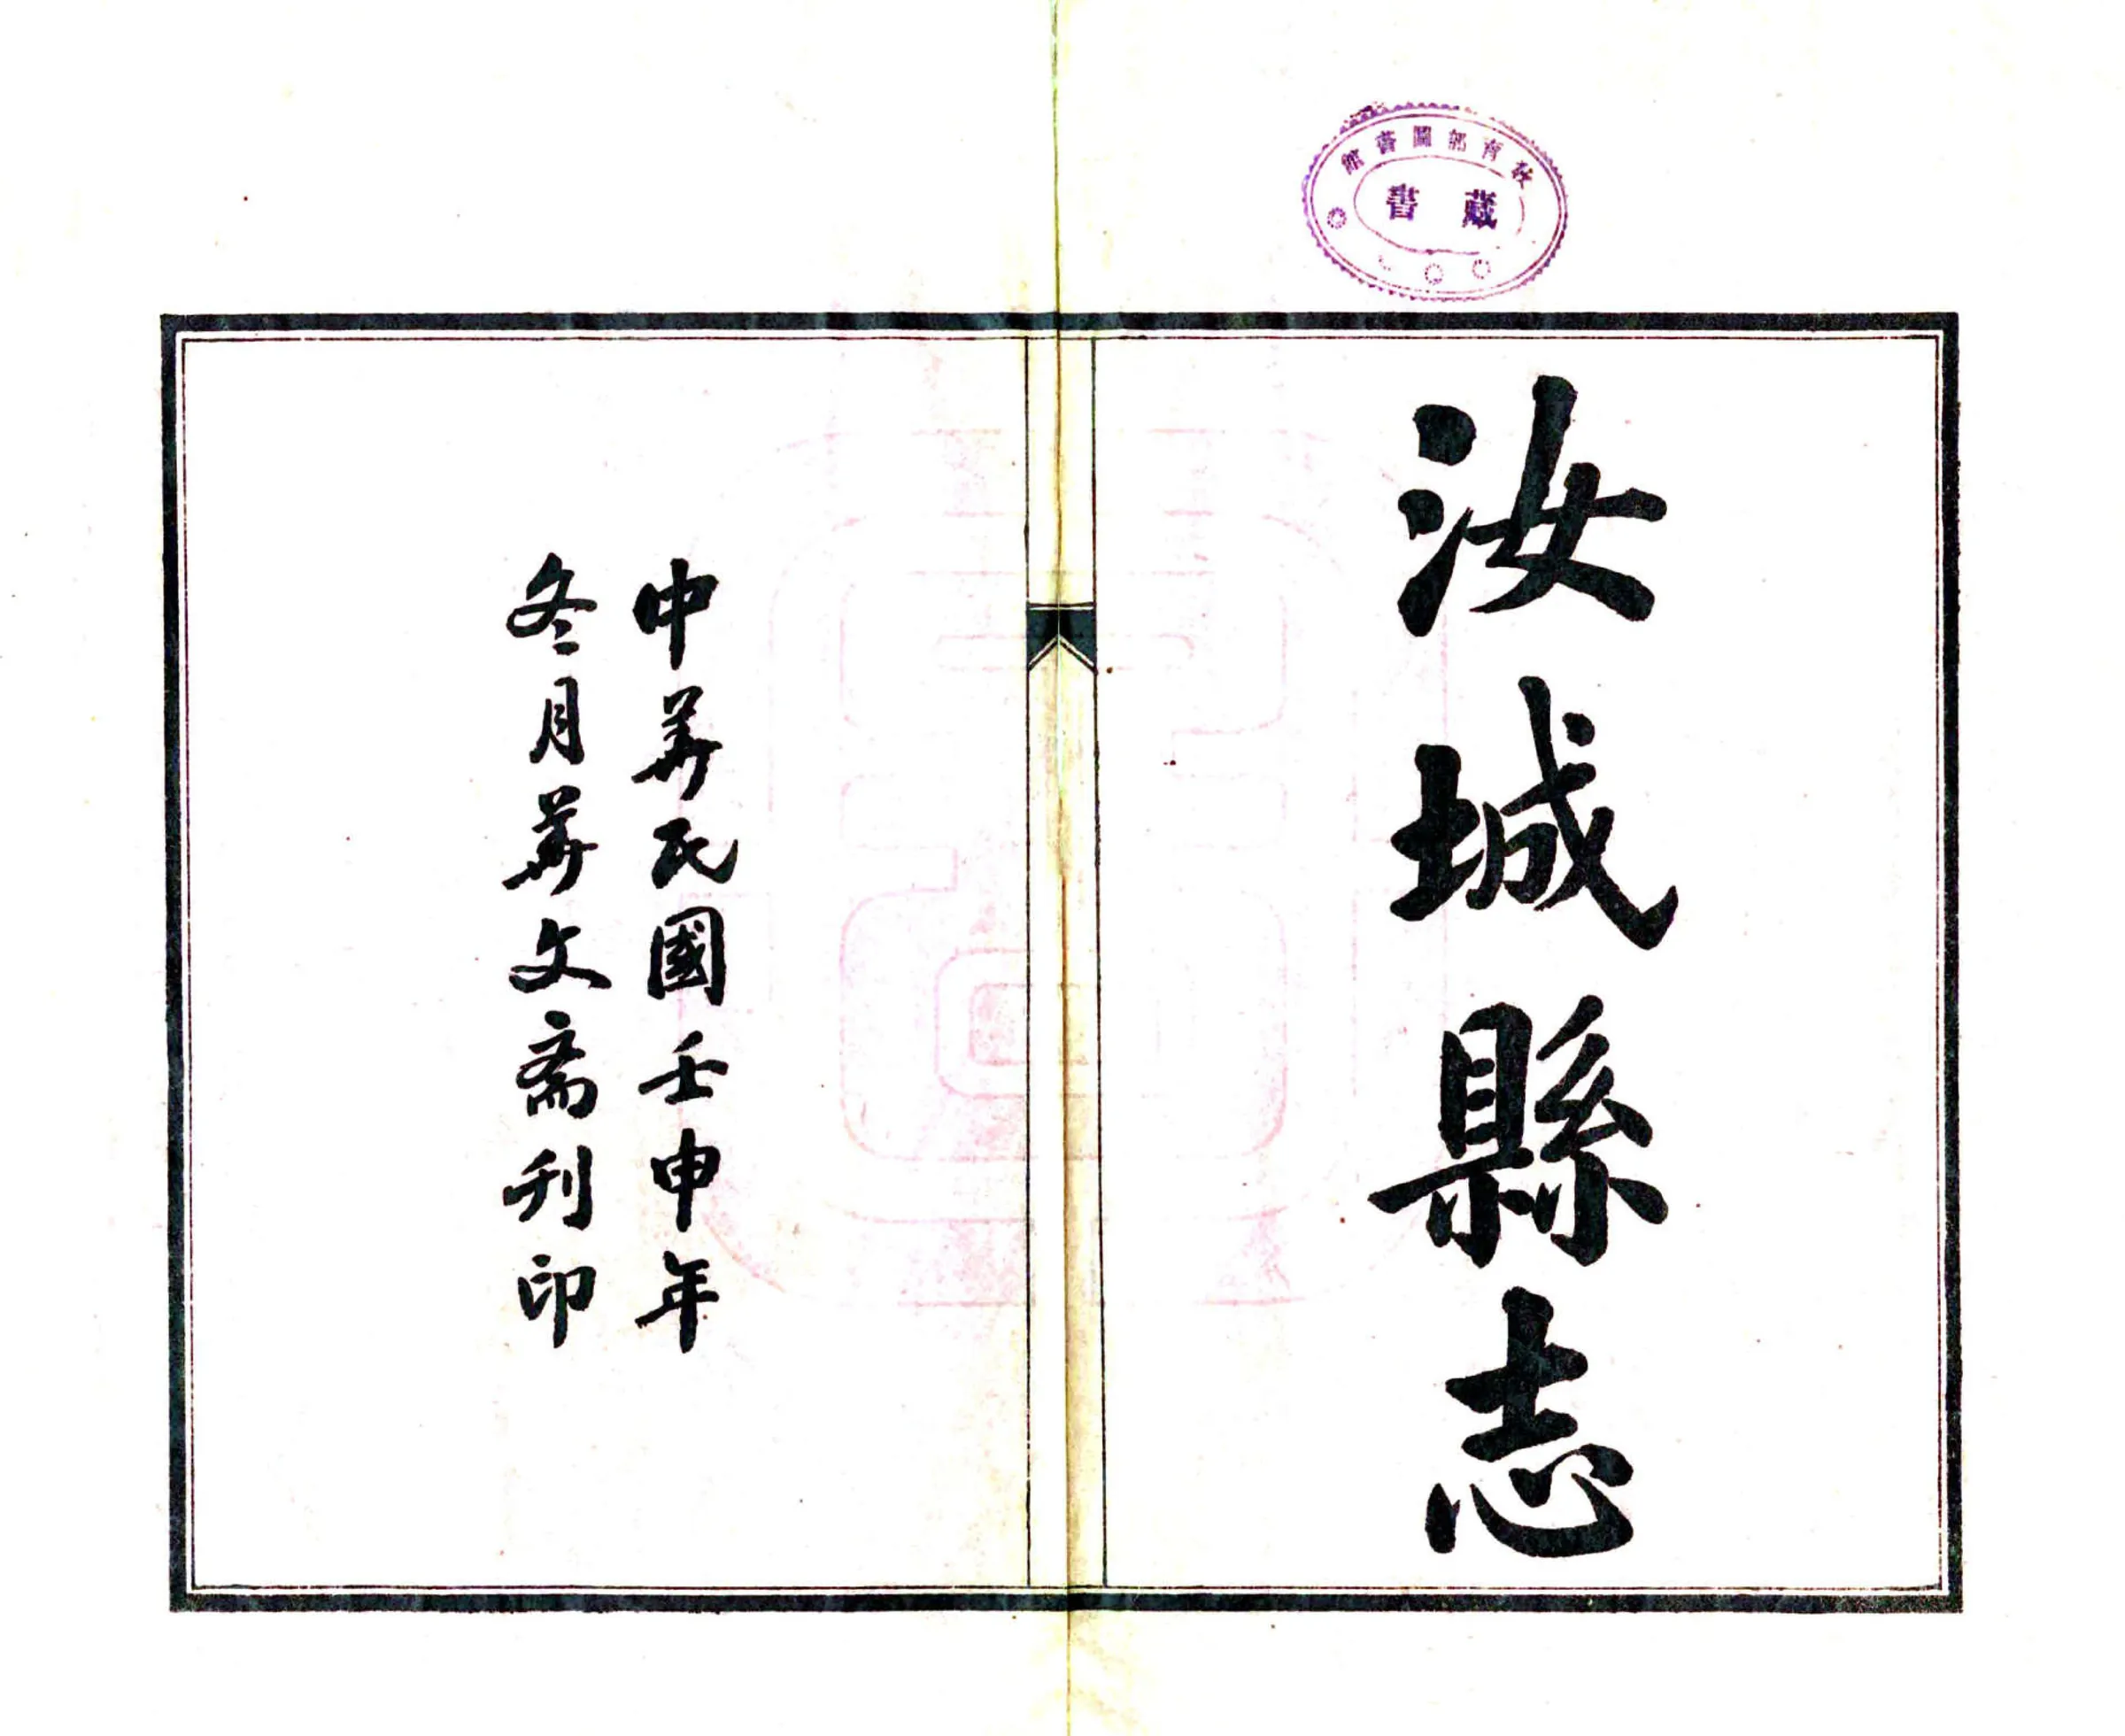 教育部圖書館
藏書
汝城縣志
中華民國壬申年
冬月華文斋刊印